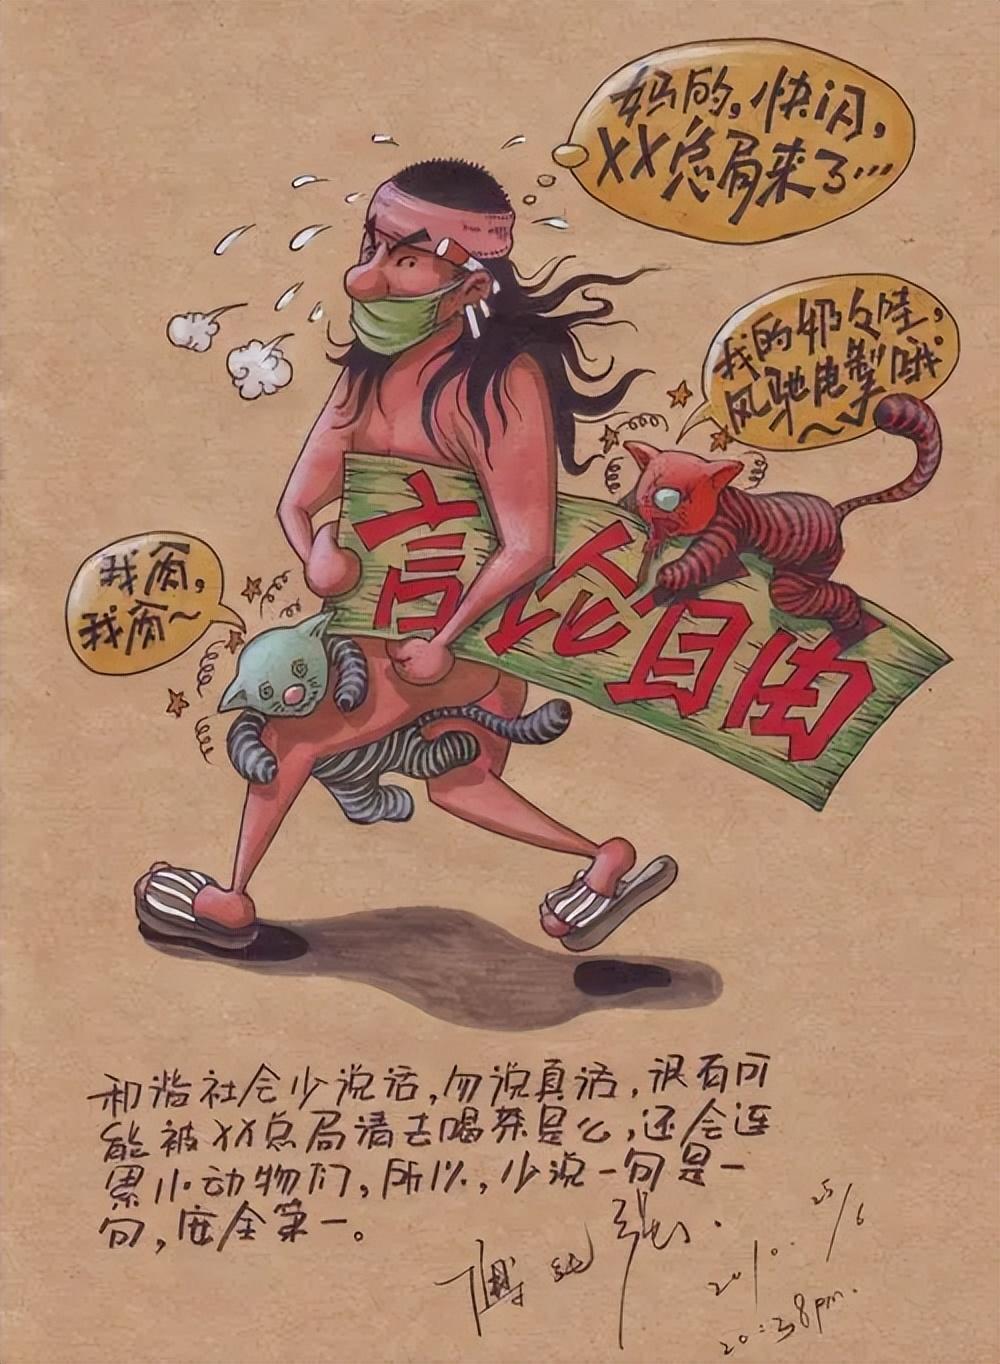 妈的,快闪,
XX总局来了…
我的奶奶哇,
风驰电掣哦~
言论自由
我病,
我病~
和谐社会少说话,勿说真话,很有可
能被XX总局请去喝茶是么,还会连
累小动物们,所以,少说一句是一
句,安全第一。
25/6
2010.
20:38pm.